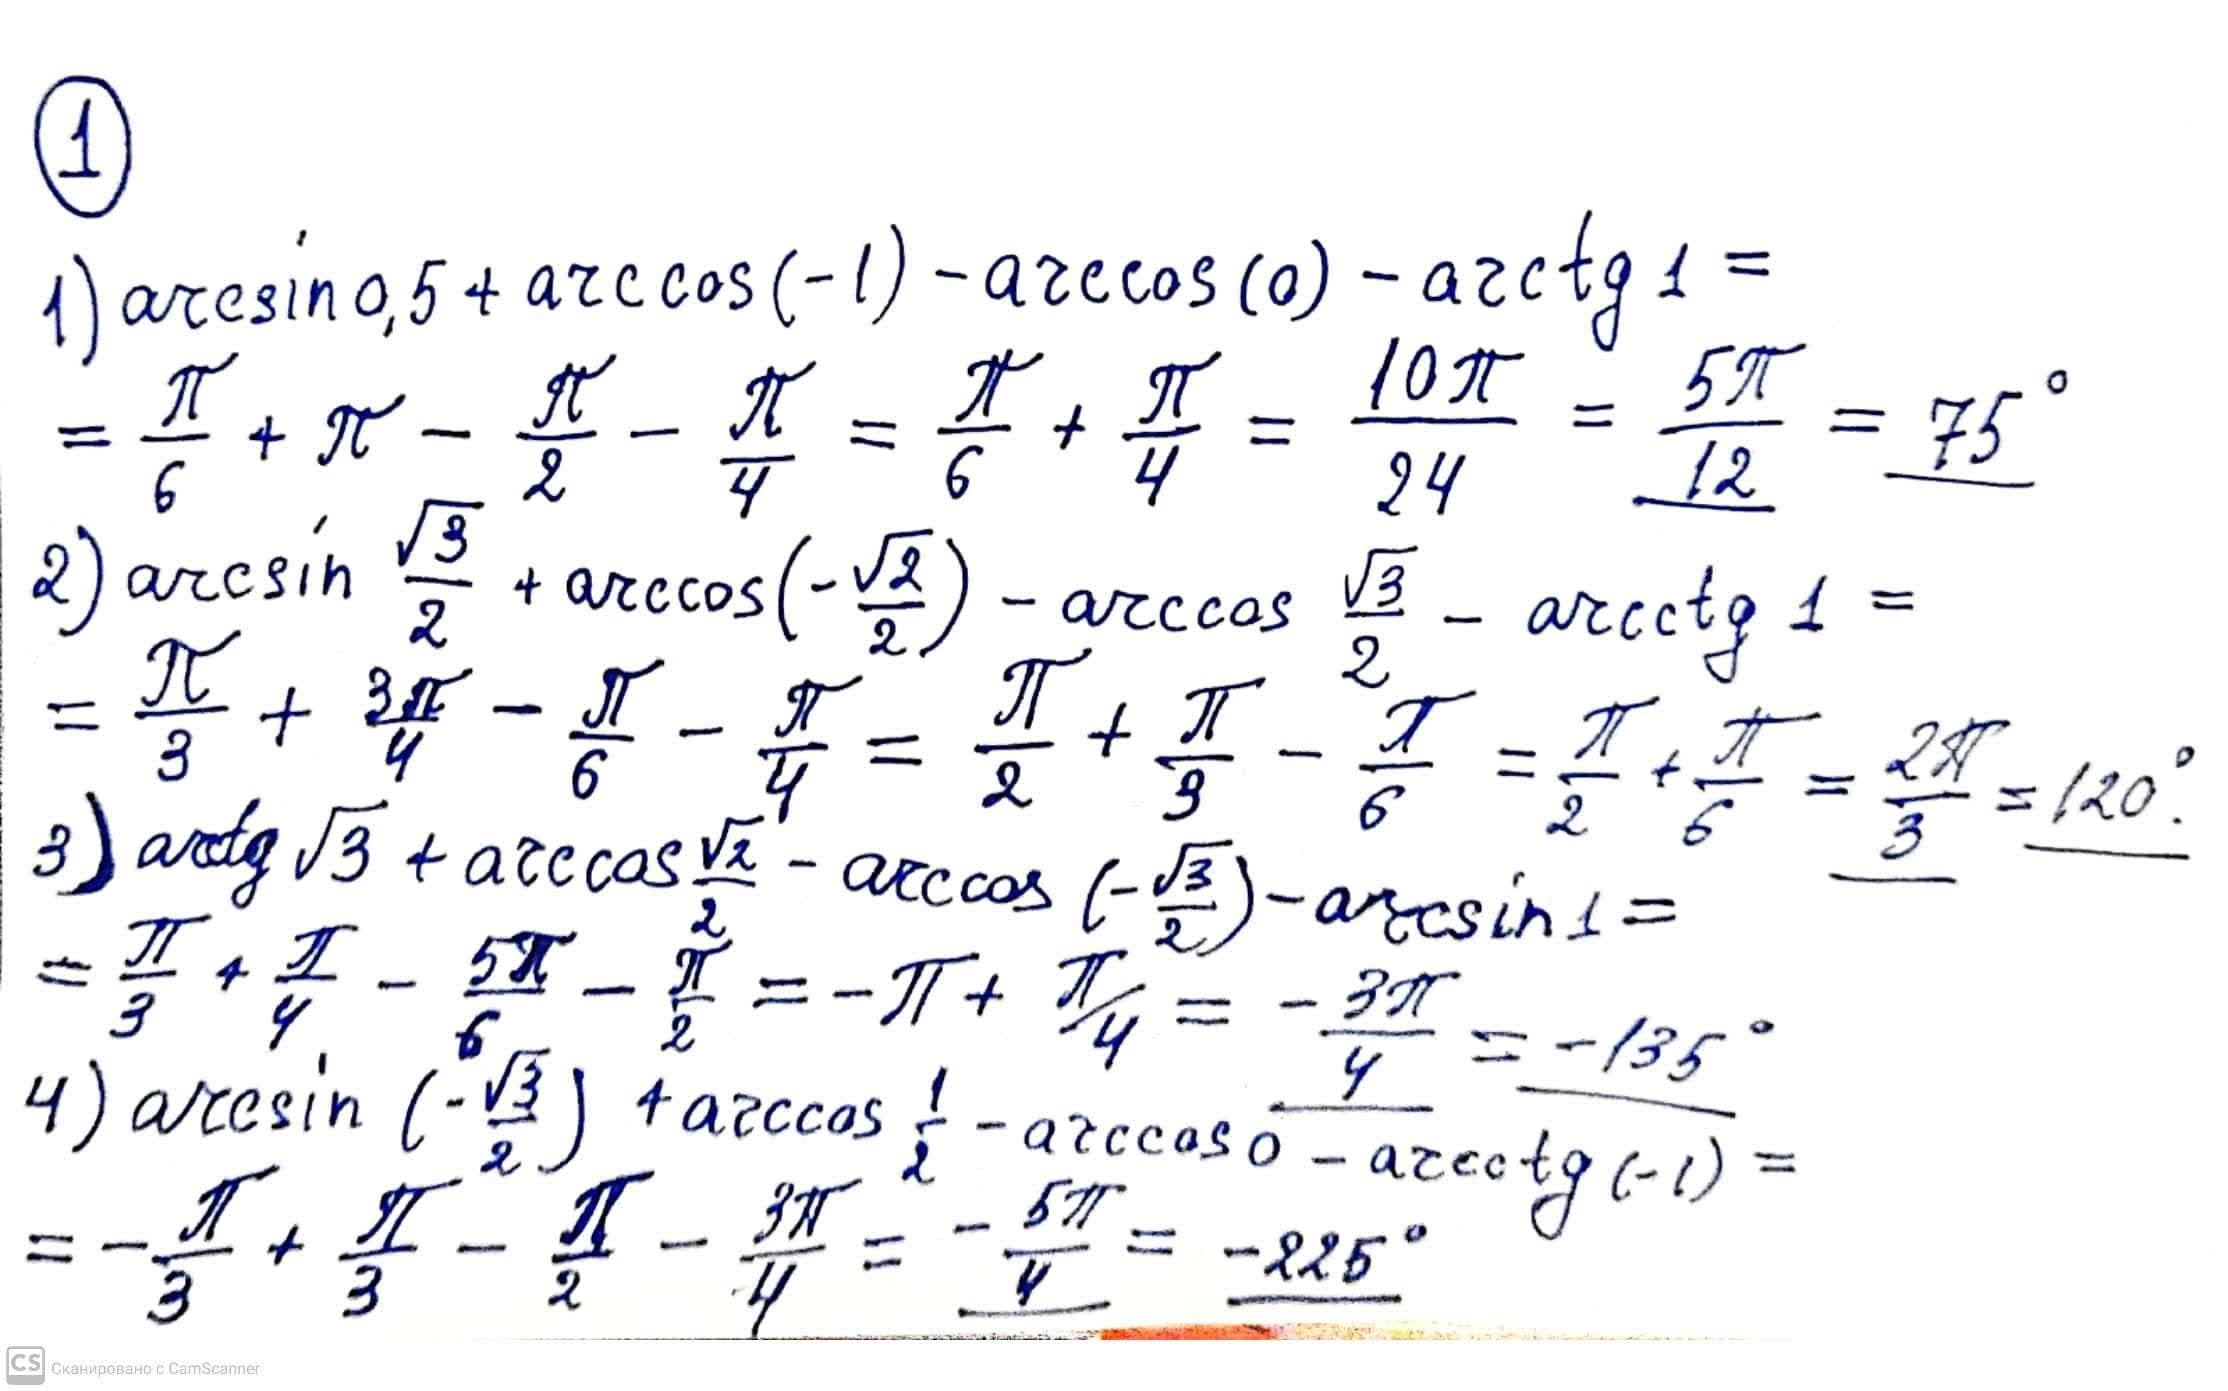 1
1) arcsin 0,5 + arccos(-1) - arccos(0) - arctg 1 =
= π/6 + π - π/2 - π/4 = π/6 + π/4 = 10π/24 = 5π/12 = 75°
2) arcsin √3/2 + arccos(-√2/2) - arccos √3/2 - arcctg 1 =
= π/3 + 3π/4 - π/6 - π/4 = π/2 + π/3 - π/6 = π/2 + π/6 = 2π/3 = 120°.
3) arctg √3 + arccos √2/2 - arccos (-√3/2) - arcsin 1 =
= π/3 + π/4 - 5π/6 - π/2 = -π + π/4 = -3π/4 = -135°
4) arcsin (-√3/2) + arccos 1/2 - arccos 0 - arcctg (-1) =
= -π/3 + π/3 - π/2 - 3π/4 = -5π/4 = -225°
CS Сканировано с CamScanner